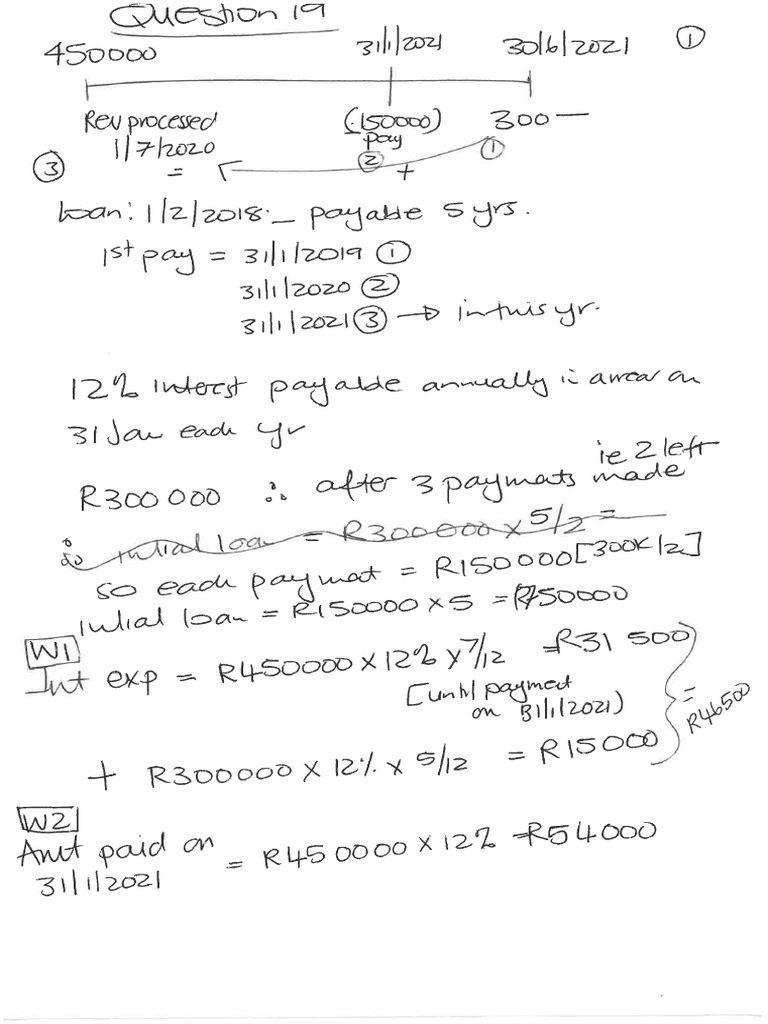 Question 19
450000 31/1/2021 30/6/2021 ①
Rev processed (150000) 300 —
1/7/2020 pay ①
③ = ② +
Loan: 1/2/2018 – payable 5 yrs.
1st pay = 31/1/2019 ①
31/1/2020 ②
31/1/2021 ③ → in this yr.
12% interest payable annually in arrear on
31 Jan each yr
ie 2 left
R300 000 ∴ after 3 paymats made
∴ initial loan = R300000 x 5/2 =
so each paymat = R150000 [300K/2]
initial loan = R150000 x 5 = R750000
W1
Int exp = R450000 x 12% x 7/12 = R31 500
[until payment
on 31/1/2021)
= R46500
+ R300000 x 12% x 5/12 = R15000
W2
Amt paid on = R450000 x 12% = R54000
31/1/2021